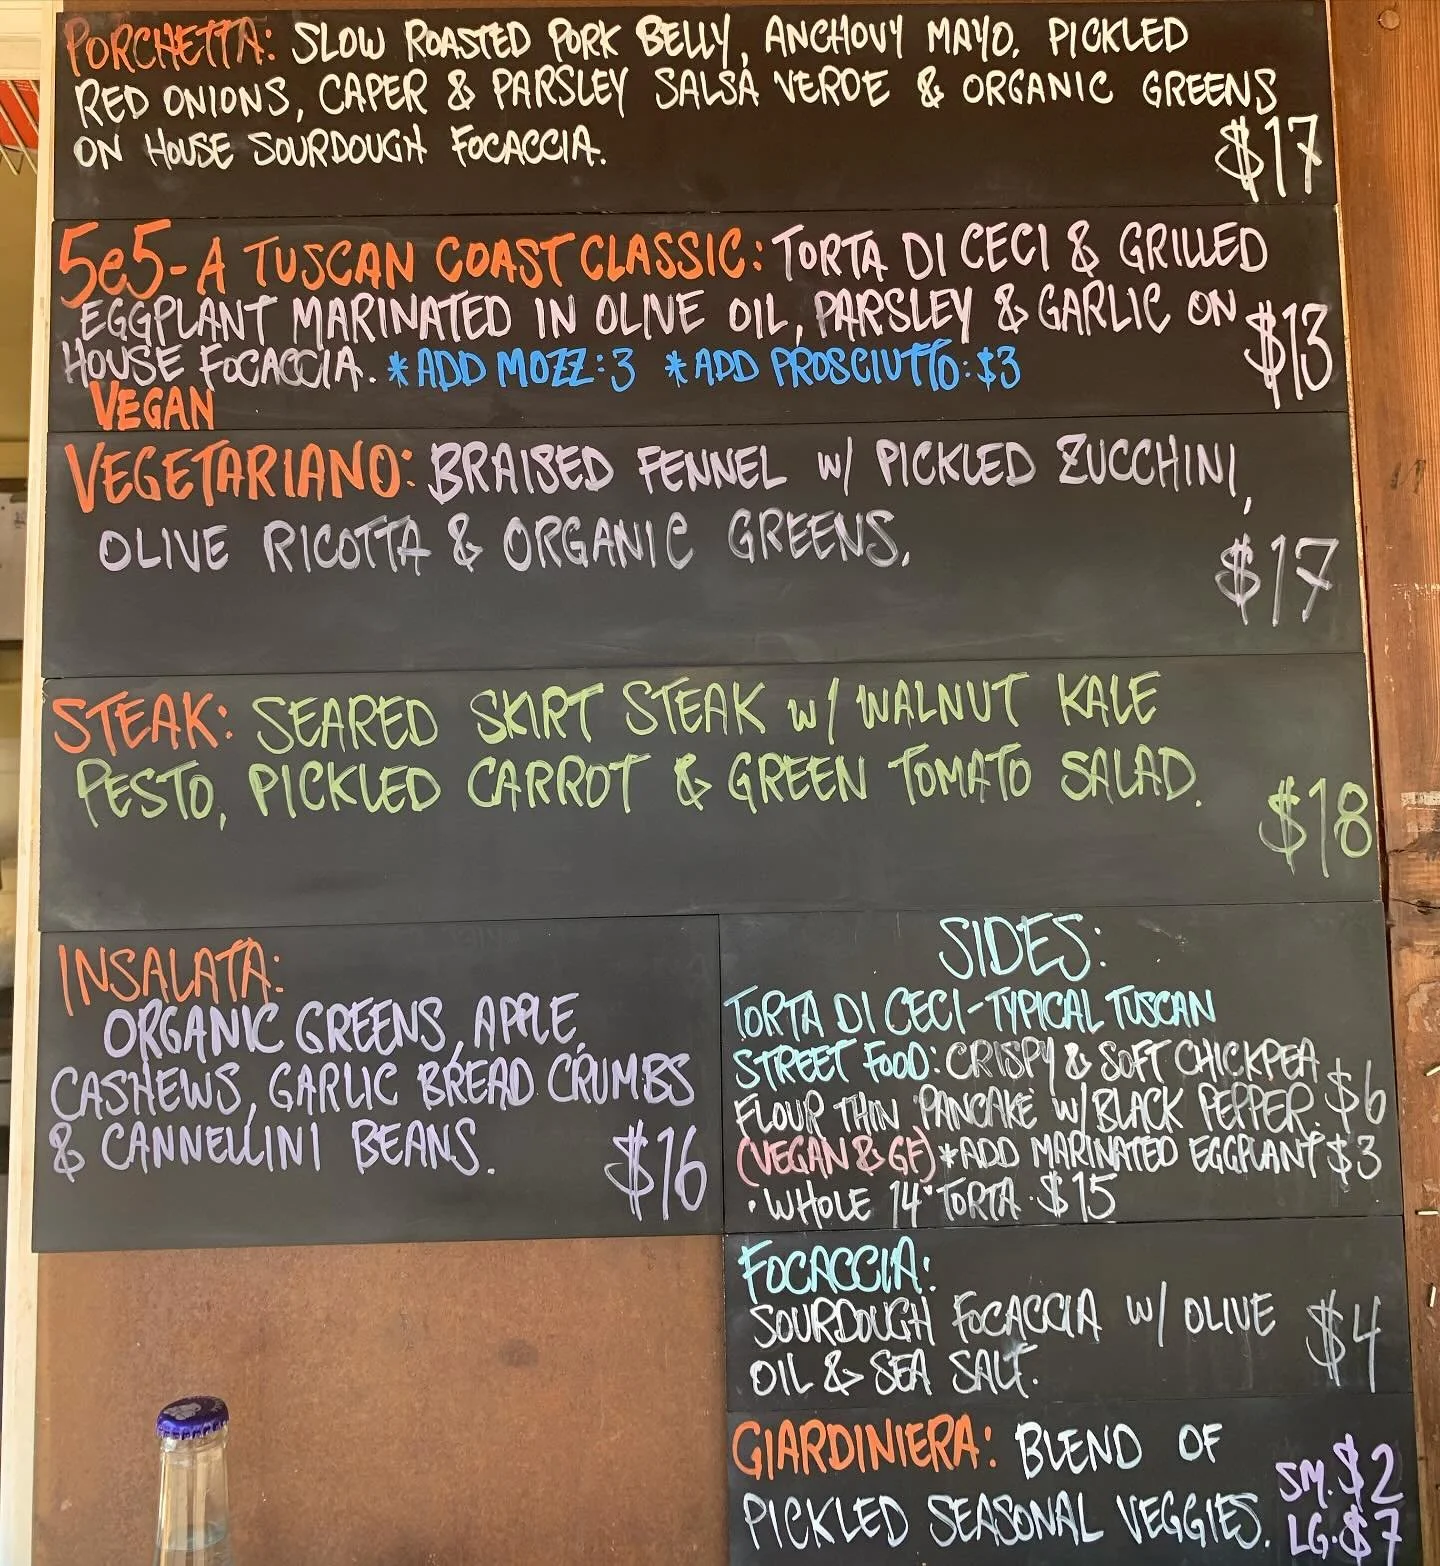 PORCHETTA: SLOW ROASTED PORK BELLY, ANCHOVY MAYO, PICKLED
RED ONIONS, CAPER & PARSLEY SALSA VERDE & ORGANIC GREENS
ON HOUSE SOURDOUGH FOCACCIA.
$17
5e5-A TUSCAN COAST CLASSIC: TORTA DI CECI & GRILLED
EGGPLANT MARINATED IN OLIVE OIL, PARSLEY & GARLIC ON
HOUSE FOCACCIA. *ADD MOZZ:3 *ADD PROSCIUTTO:$3
$13
VEGAN
VEGETARIANO: BRAISED FENNEL w/ PICKLED ZUCCHINI,
OLIVE RICOTTA & ORGANIC GREENS.
$17
STEAK: SEARED SKIRT STEAK w/ WALNUT KALE
PESTO, PICKLED CARROT & GREEN TOMATO SALAD.
$18
INSALATA:
ORGANIC GREENS, APPLE,
CASHEWS, GARLIC BREAD CRUMBS
& CANNELLINI BEANS.
$16
SIDES:
TORTA DI CECI-TYPICAL TUSCAN
STREET FOOD: CRISPY & SOFT CHICKPEA
FLOUR THIN PANCAKE w/ BLACK PEPPER. $6
(VEGAN & GF) *ADD MARINATED EGGPLANT $3
• WHOLE 14" TORTA $15
FOCACCIA:
SOURDOUGH FOCACCIA w/ OLIVE
OIL & SEA SALT.
$4
GIARDINIERA: BLEND OF
PICKLED SEASONAL VEGGIES.
SM. $2
LG. $7